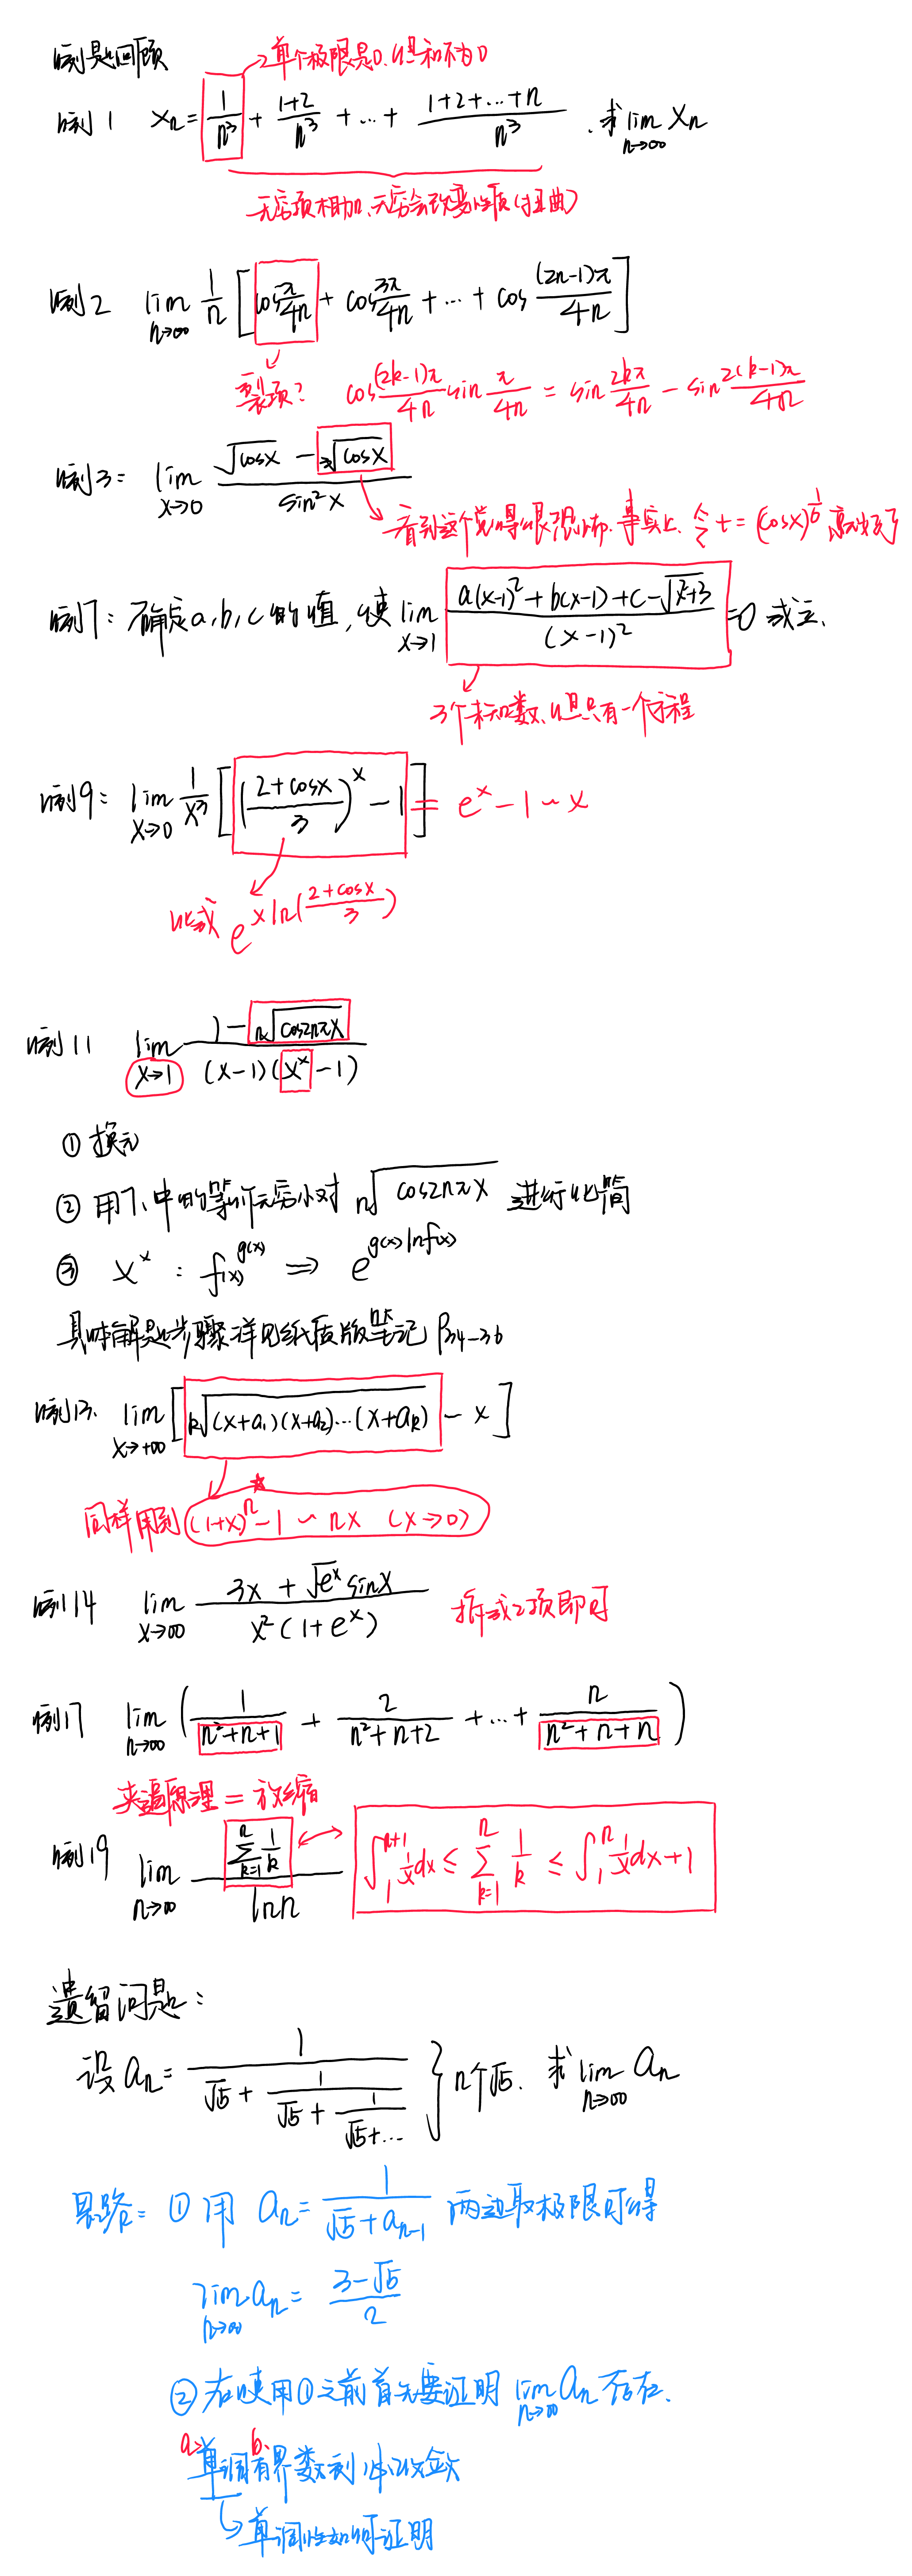 例题回顾
单个极限是0,但和不为0
例1 xₙ = 1/n³ + (1+2)/n³ + … + (1+2+…+n)/n³ . 求 lim_{n→∞} xₙ
无穷项相加,无穷会改变性质(扭曲)
例2 lim_{n→∞} 1/n [cos π/4n + cos 3π/4n + … + cos (2n-1)π/4n]
裂项? cos (2k-1)π/4n sin π/4n = sin 2kπ/4n - sin 2(k-1)π/4n
例3: lim_{x→0} (√cosx - ³√cosx)/sin²x
看到这个觉得很恐怖,事实上,令 t = (cosx)^{1/6} 就好了
例7: 确定a,b,c的值,使 lim_{x→1} (a(x-1)²+b(x-1)+c-√(x²+3))/(x-1)² = 0 成立.
3个未知数,但只有一个方程
例9: lim_{x→0} 1/x³ [((2+cosx)/3)^x - 1] = e^x - 1 ~ x
化成 e^{x ln((2+cosx)/3)}
例11 lim_{x→1} (1 - ⁿ√cos2nπx)/((x-1)(x^x-1))
① 换元
② 用7.中的等价无穷小对 ⁿ√cos2nπx 进行化简
③ x^x : f(x)^{g(x)} ⇒ e^{g(x)lnf(x)}
具体解题步骤详见纸质版笔记 P34-36
例13. lim_{x→+∞} [ᵏ√((x+a₁)(x+a₂)…(x+aₖ)) - x]
同样用到 (1+x)ⁿ - 1 ~ nx (x→0)
例14 lim_{x→∞} (3x + √e^x sinx)/(x²(1+e^x)) 拆成2项即可
例17 lim_{n→∞} (1/(n²+n+1) + 2/(n²+n+2) + … + n/(n²+n+n))
夹逼原理 = 放缩
例19 lim_{n→∞} (∑_{k=1}^{n} 1/k)/lnn ∫₁^{n+1} 1/x dx ≤ ∑_{k=1}^{n} 1/k ≤ ∫₁^{n} 1/x dx + 1
遗留问题:
设 aₙ = 1/(√5 + 1/(√5 + 1/(√5+…))) } n个√5. 求 lim_{n→∞} aₙ
思路: ① 用 aₙ = 1/(√5+aₙ₋₁) 两边取极限可得
lim_{n→∞} aₙ = (3-√5)/2
② 在使用①之前首先要证明 lim_{n→∞} aₙ 存在.
a. b.
单调有界数列必收敛
单调性如何证明